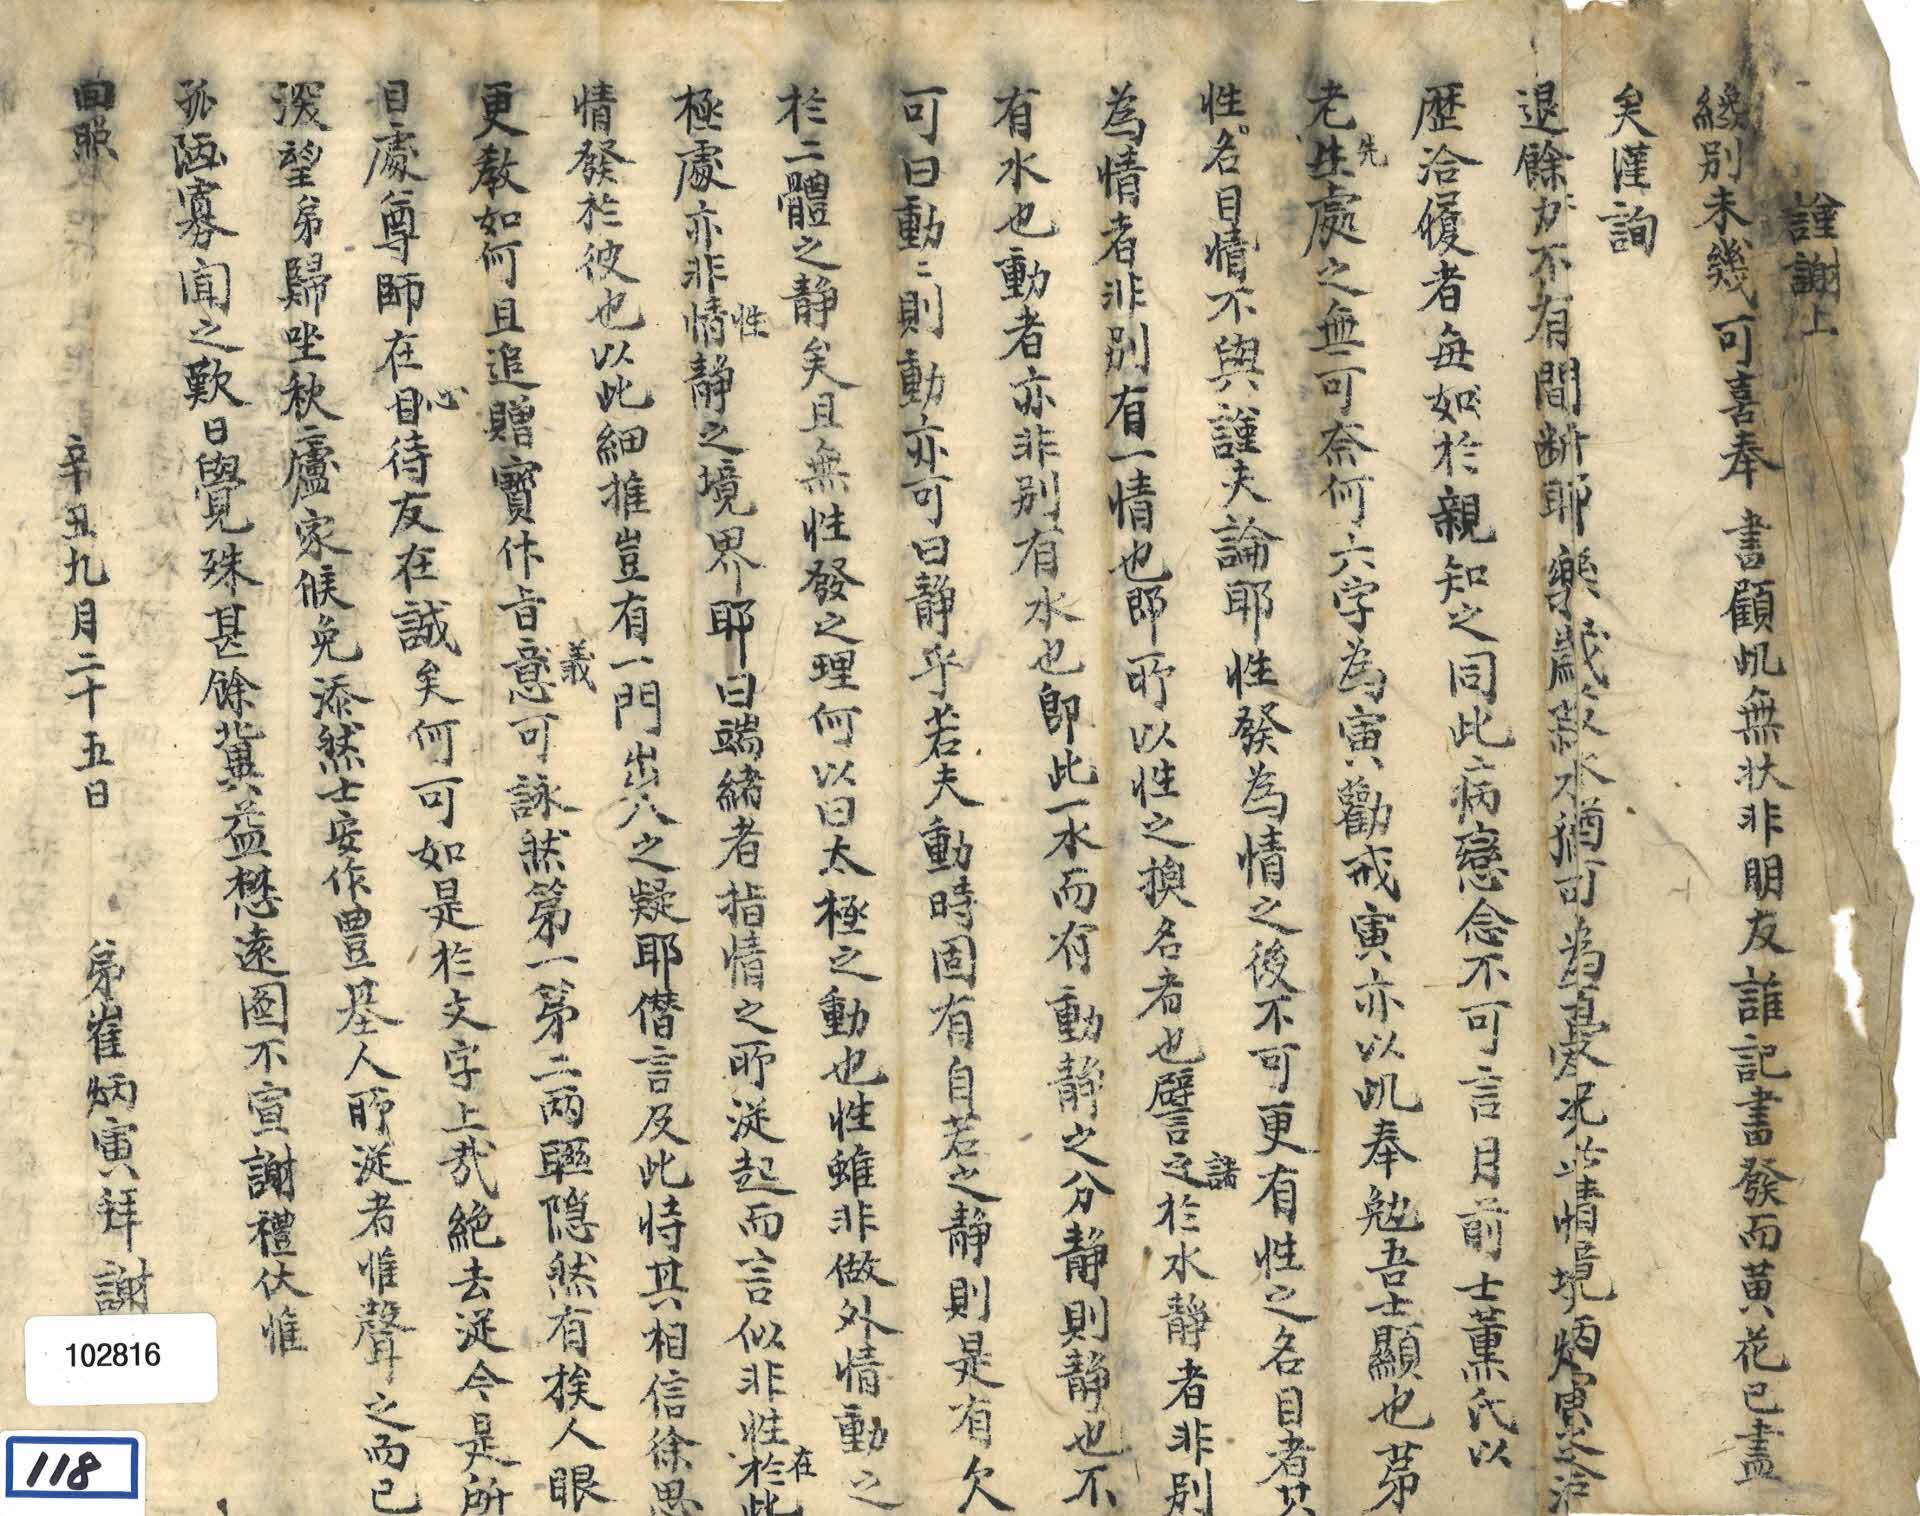 謹謝上
纔別未幾可喜奉 書顧㕤無狀非朋友誰記書發而黃花已盡
矣謹詢
退餘 不有間斷耶樂歲菽水猶可為憂況此情境炳寅
歷洽履者每如於親知之同此病戀念不可言目前士薰氏以
老先生處之無可奈何六字為寅勸戒寅亦以㕤奉勉吾士顯也第
性名目情不與謹夫論耶性發為情之後不可更有性之名目者其
為情者非別有一情也即所以性之換名者也譬諸之於水靜者非別
有水也動者亦非別有水也即此一水而有動靜之分靜則靜也不
可曰動〻則動亦可曰靜乎若夫動時固有自若之靜則是有欠
於二體之靜矣且無性發之理何以曰太極之動也性雖非做外情動之
極處亦非情性靜之境界耶曰端緒者指情之所從起而言似非性在於此
情發於彼也以此細推豈有一門出入之疑耶僭言及此恃其相信徐思
更敎如何且追贈寶什旨意義可詠然第一第二兩聯隱然有挨人眼
目處尊師在心目待友在誠矣何可如是於文字上哉絶去從今是所
深望弟歸坐秋廬家候免添然士安作豊基人所從者惟聲之而已
孤陋寡聞之歎日覺殊甚餘冀益懋遠圖不宣謝禮伏惟
回照
辛丑九月二十五日 弟崔炳寅拜謝
102816
118